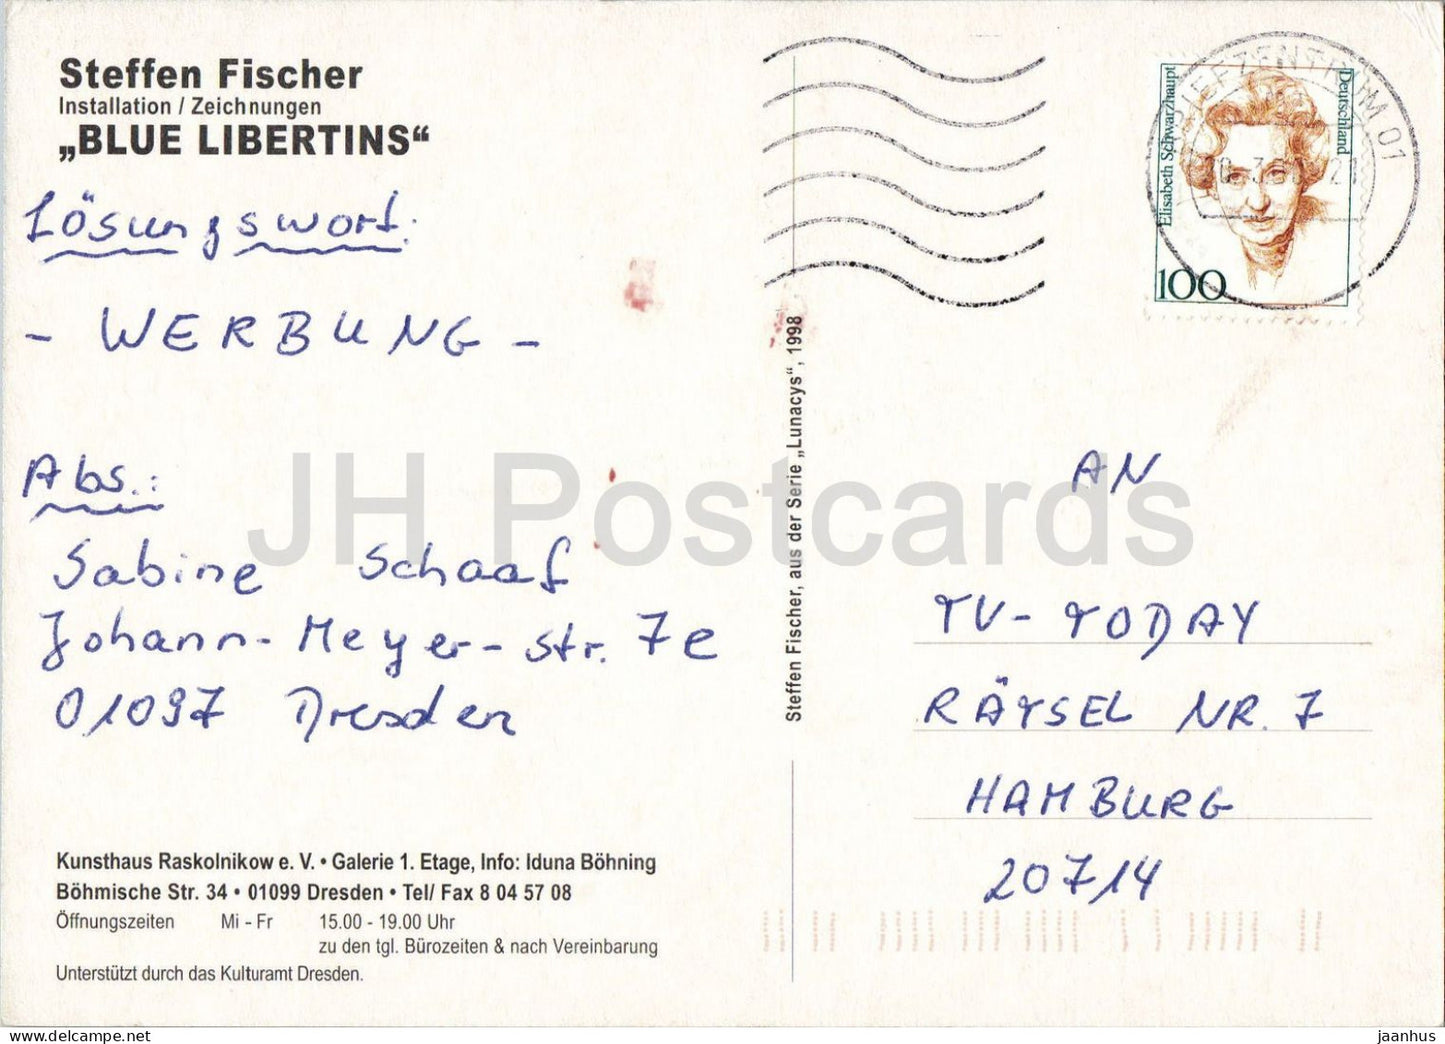 Steffen Fischer
Installation / Zeichnungen
„BLUE LIBERTINS“
Lösungswort:
- WERBUNG -
Abs.:
Sabine Schaaf
Johann-Meyer-str. 7e
01097 Dresden
Kunsthaus Raskolnikow e. V. • Galerie 1. Etage, Info: Iduna Böhning
Böhmische Str. 34 • 01099 Dresden • Tel/ Fax 8 04 57 08
Öffnungszeiten Mi - Fr 15.00 - 19.00 Uhr
zu den tgl. Bürozeiten & nach Vereinbarung
Unterstützt durch das Kulturamt Dresden.
Steffen Fischer, aus der Serie „Lunacys“, 1998
Elisabeth Schwarzhaupt
Deutschland
100
BRIEFZENTRUM 01
AN
TV-TODAY
RÄTSEL NR. 7
HAMBURG
20714
JH Postcards
www.delcampe.net
jaanhus